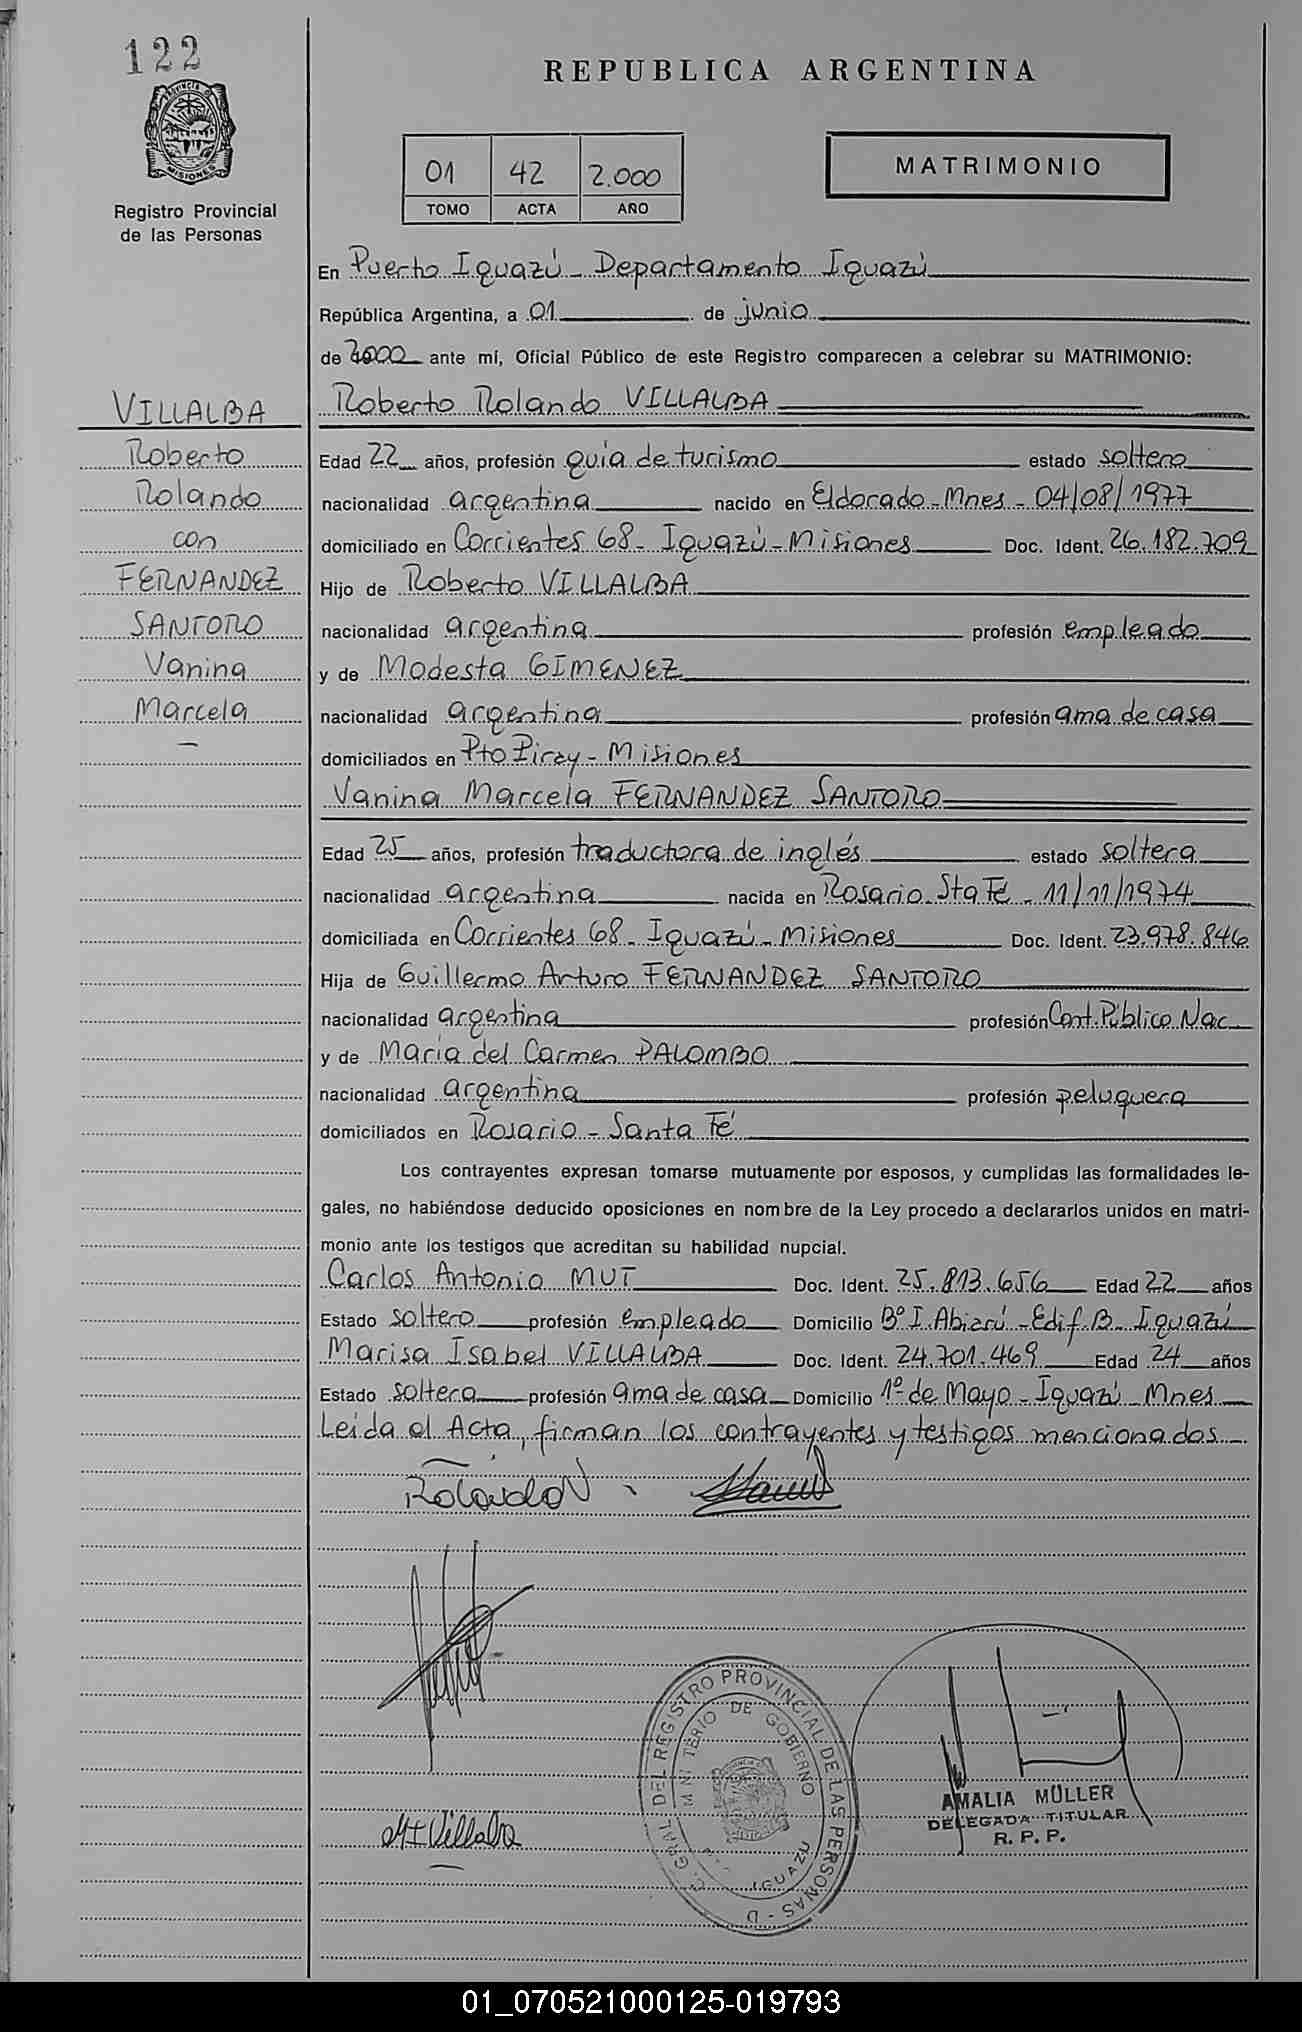 122
REPUBLICA ARGENTINA
PROVINCIA D
MISIONES
Registro Provincial
de las Personas
01 42 2.000
TOMO ACTA AÑO
MATRIMONIO
En Puerto Iguazú - Departamento Iguazú
República Argentina, a 01 de junio
de 2000 ante mí, Oficial Público de este Registro comparecen a celebrar su MATRIMONIO:
VILLALBA
Roberto
Rolando
con
FERNANDEZ
SANTORO
Vanina
Marcela
Roberto Rolando VILLALBA
Edad 22 años, profesión guía de turismo estado soltero
nacionalidad argentina nacido en Eldorado - Mnes - 04/08/1977
domiciliado en Corrientes 68 - Iguazú - Misiones Doc. Ident. 26.182.709
Hijo de Roberto VILLALBA
nacionalidad argentina profesión empleado
y de Modesta GIMENEZ
nacionalidad argentina profesión ama de casa
domiciliados en Pto Piray - Misiones
Vanina Marcela FERNANDEZ SANTORO
Edad 25 años, profesión traductora de inglés estado soltera
nacionalidad argentina nacida en Rosario - Sta Fé - 11/11/1974
domiciliada en Corrientes 68 - Iguazú - Misiones Doc. Ident. 23.978.846
Hija de Guillermo Arturo FERNANDEZ SANTORO
nacionalidad argentina profesión Cont. Público Nac.
y de María del Carmen PALOMBO
nacionalidad argentina profesión peluquera
domiciliados en Rosario - Santa Fé
Los contrayentes expresan tomarse mutuamente por esposos, y cumplidas las formalidades le-
gales, no habiéndose deducido oposiciones en nombre de la Ley procedo a declararlos unidos en matri-
monio ante los testigos que acreditan su habilidad nupcial.
Carlos Antonio MUT Doc. Ident. 25.813.656 Edad 22 años
Estado soltero profesión empleado Domicilio Bº I. Abiarú - Edif. B - Iguazú
Marisa Isabel VILLALBA Doc. Ident. 24.701.469 Edad 24 años
Estado soltera profesión ama de casa Domicilio 1º de Mayo - Iguazú - Mnes
Leída el Acta, firman los contrayentes y testigos mencionados
Rolando V
MI Villalba
C. GRAL DEL REGISTRO PROVINCIAL DE LAS PERSONAS - D
MINI TERIO DE GOBIERNO
IGUAZU
AMALIA MÜLLER
DELEGADA TITULAR
R. P. P.
01_070521000125-019793